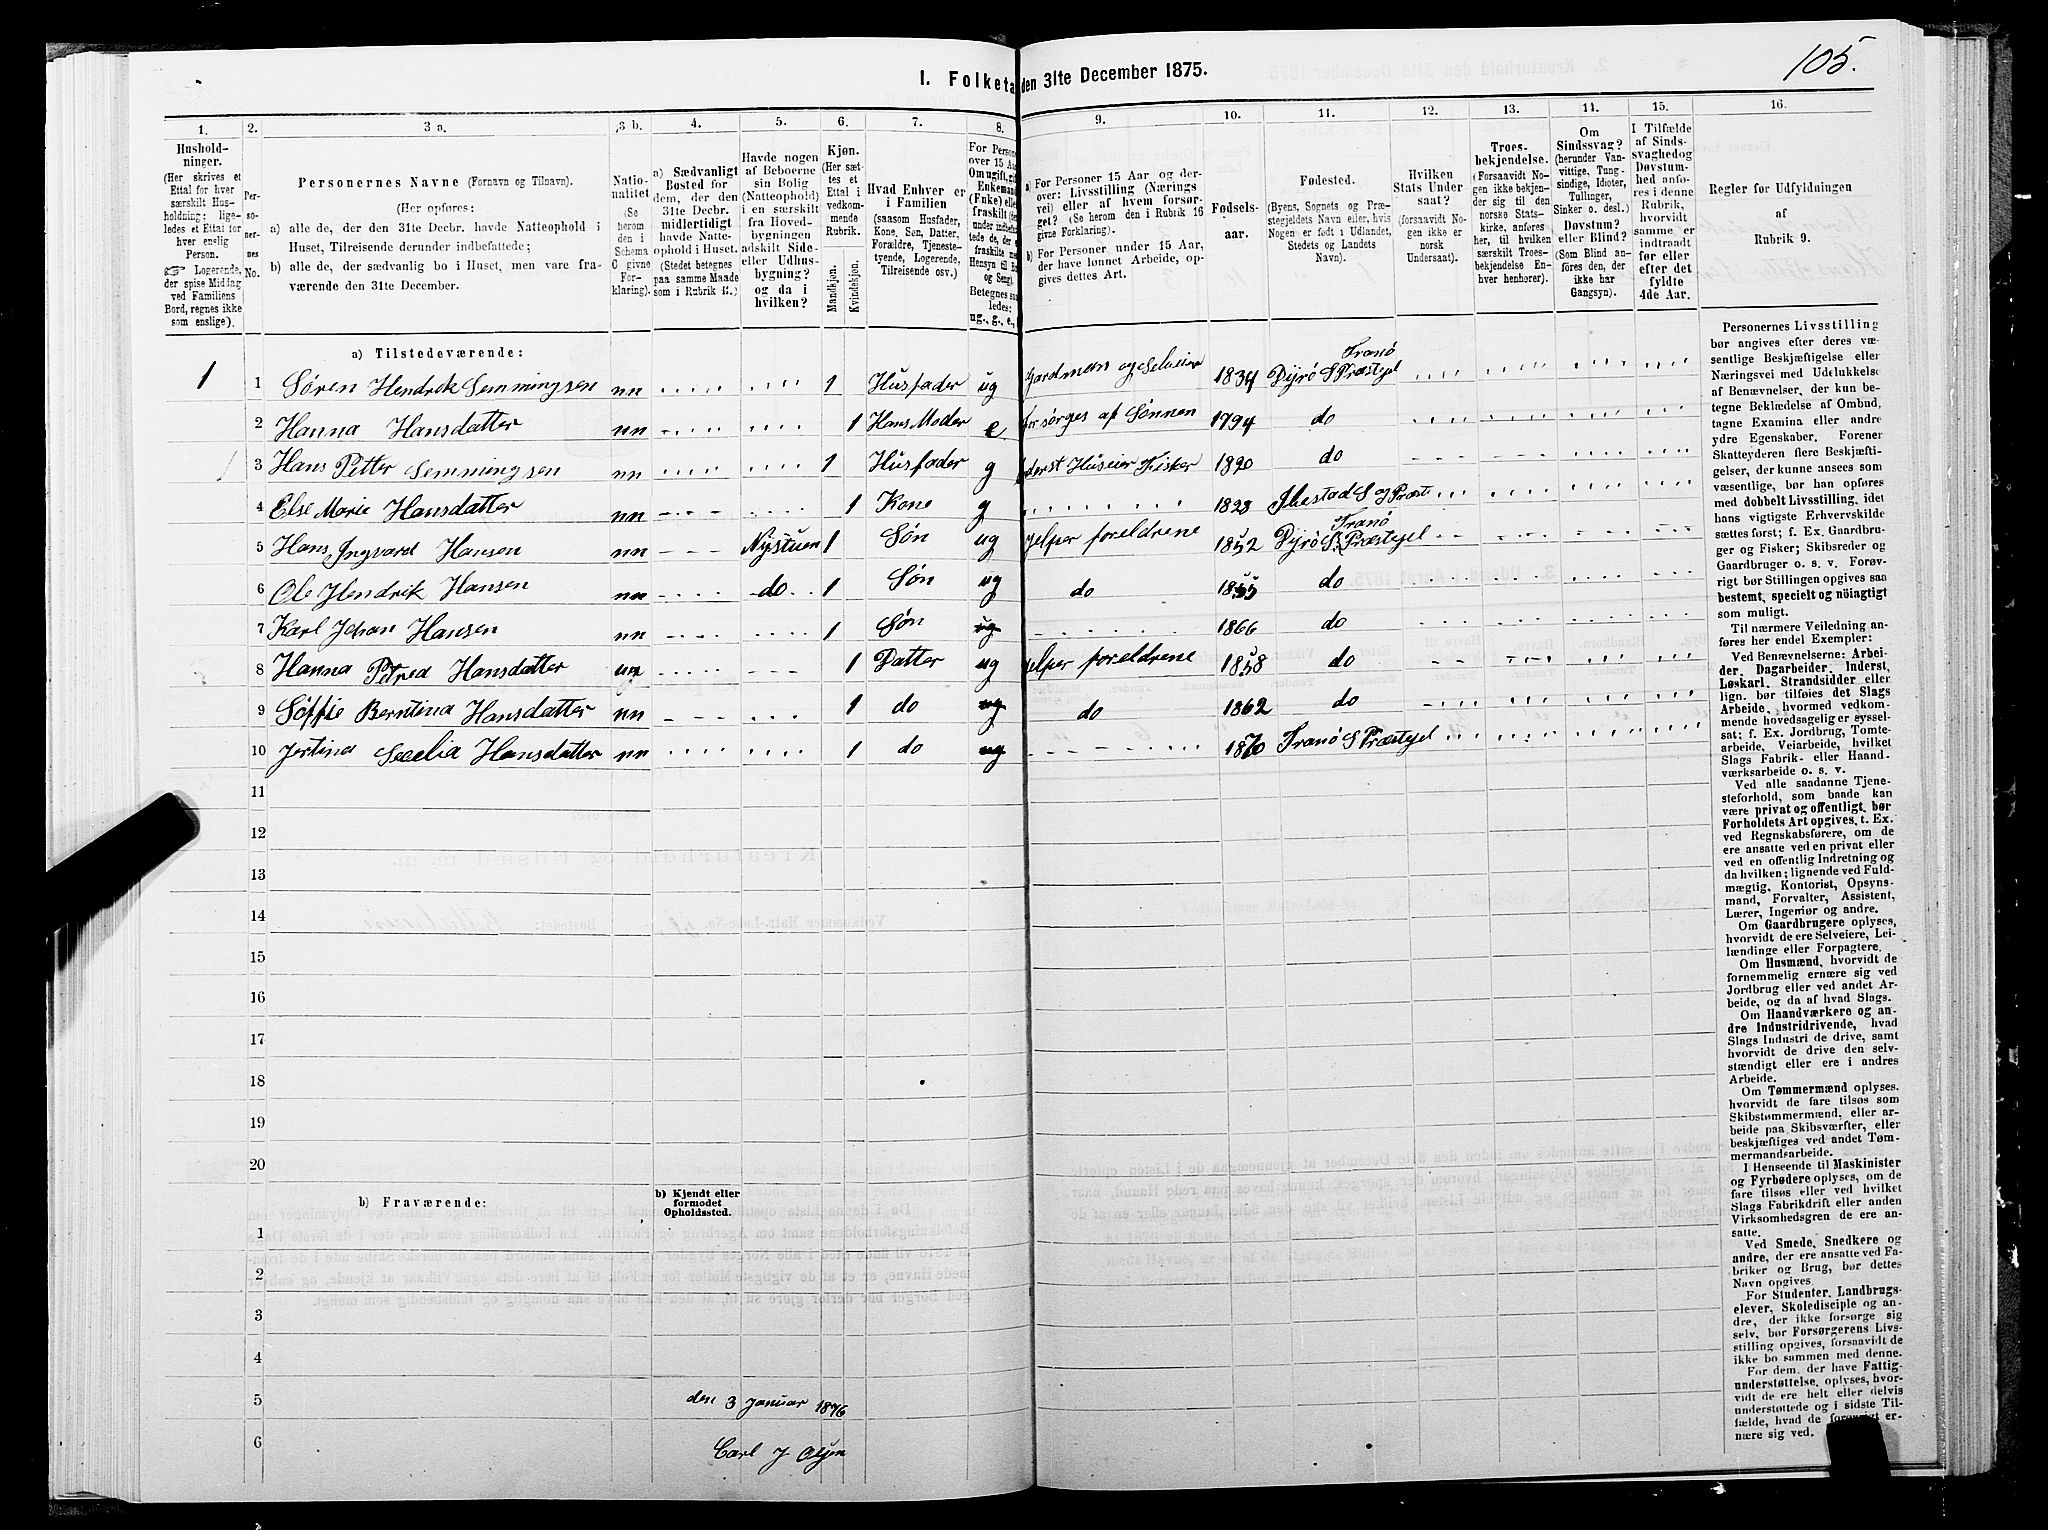 105.
1. Folketa den 31te December 1875.
1. 2. 3 a. 3 b. 4. 5. 6. 7. 8. 9. 10. 11. 12. 13. 14. 15. 16.
Hushold-
ninger.
(Her skrives et
Ettal for hver
særskilt Hus-
holdning; lige-
ledes et Ettal for
hver enslig
Person.
☞ Logerende,
der spise Middag
ved Familiens
Bord, regnes ikke
som enslige).
Per-
so-
ner-
nes
No.
Personernes Navne (Fornavn og Tilnavn).
(Her opføres:
a) alle de, der den 31te Decbr. havde Natteophold i
Huset, Tilreisende derunder indbefattede;
b) alle de, der sædvanlig bo i Huset, men vare fra-
værende den 31te December.
Natio-
nalitet
(Se
herom
den i
Schema
C givne
For-
klaring).
a) Sædvanligt
Bosted for
dem, der den
31te Decbr.
midlertidigt
havde Natte-
ophold i Huset.
(Stedet betegnes
paa samme Maade
som i Rubrik 11.)
Havde nogen
af Beboerne
sin Bolig
(Natteophold)
i en særskilt
fra Hoved-
bygningen
adskilt Side-
eller Udhus-
bygning?
og da i
hvilken?
Kjøn.
(Her sæt-
tes et
Ettal i
vedkom-
mende
Rubrik.
Mandkjøn.
Kvindekjøn.
Hvad Enhver er
i Familien
(saasom Husfader,
Kone, Søn, Datter,
Forældre, Tjeneste-
tyende, Logerende,
Tilreisende osv.)
For Persone
over 15 Aa
Om ugift, gif
Enkemand
(Enke) elle
fraskilt
Betegnes saa
ledes:
ug., g., e.,
a) For Personer 15 Aar og der-
over: Livsstilling (Nærings
vei) eller af hvem forsør-
get? (Se herom den i Rubrik 16
givne Forklaring).
b) For Personer under 15 Aar,
der have lønnet Arbeide, op-
gives dettes Art.
Fødsels-
aar.
Fødested.
(Byens, Sognets og Præ-
stegjeldets Navn eller, hvis
Nogen er født i Udlandet,
Stedets og Landets
Navn).
Hvilken
Stats Under-
saat?
(forsaavidt No-
gen ikke er
norsk
Undersaat).
Troes-
bekjendelse.
(Forsaavidt No-
gen ikke bekjen-
der sig til den
norske Stats-
kirke, anføres
her, til hvilken
særskilt Troes-
bekjendelse En-
hver henhører).
Om
Sindssvag?
(herunder Van-
vittige, Tung-
sindige, Idioter,
Tullinger,
Sinker o. desl.)
Døvstum?
eller Blind?
(Som Blind an-
føres den, der
ikke har
Gangsyn).
I Tilfælde
af Sinds-
svaghed og
Døvstum-
hed anfø-
res i denne
Rubrik,
hvorvidt
samme er
indtraadt
før eller
efter det
fyldte
4de Aar.
Regler for Udfyldningen
af
Rubrik 9.
a) Tilstedeværende:
1 1 Søren Hendrik Semmingsen nn 1 Husfader ug Jordman og Seleier 1834 Dyrø S Tranø Præstgel
2 Hanna Hansdatter nn 1 Hans Moder e forsørges af Sønnen 1794 do
3 Hans Petter Semmingsen nn 1 Husfader g Huseier Fisker 1820 do
4 Else Marie Hansdatter nn 1 Kone g 1823 Ibestad S og Præste
5 Hans Ingvard Hansen nn Nystuen 1 Søn ug jelper foreldrene 1852 Dyrø S Tranø Præstgel
6 Ole Hendrik Hansen nn do 1 Søn ug do 1855 do
7 Karl Johan Hansen nn 1 Søn ug 1866 do
8 Hanna Petrea Hansdatter nn 1 Datter ug jelper foreldrene 1858 do
9 Søffie Berntina Hansdatter nn 1 do ug do 1862 do
10 Jertina Secelia Hansdatter nn 1 do ug 1870 Tranø S Præstgel
11
12
13
14
15
16
17
18
19
20
b) Fraværende:
b) Kjendt eller
formodet
Opholdssted.
1
2
3
4
5
6
den 3 Januar 1876
Carl J Olsen
Personernes Livsstilling
bør angives efter deres væ-
sentlige Beskjæftigelse eller
Næringsvei med Udelukkelse
af Benævnelser, der kun be-
tegne Beklædelse af Ombud,
tagne Examina eller andre
ydre Egenskaber. Forener
Skatteyderen flere Beskjæfti-
gelser, der kunne ansees som
væsentlige, bør han opføres
med dobbelt Livsstilling, idet
hans vigtigste Erhvervskilde
sættes først; f. Ex. Gaardbru-
ger og Fisker; Skibsreder og
Gaardbruger o. s. v. Forøv-
rigt bør Stillingen opgives saa
bestemt, specielt og nöiagtigt
som muligt.
Til nærmere Veiledning an-
føres her endel Exempler:
Ved Benævnelserne: Arbei-
der, Dagarbeider, Inderst,
Løskarl, Strandsidder eller
lign. bør tilføies det Slags
Arbeide, hvormed vedkom-
mende hovedsagelig er syssel-
sat; f. Ex. Jordbrug, Tomte-
arbeide, Veiarbeide, hvilket
Slags Fabrik- eller Haand-
værksarbeide o. s. v.
Ved alle saadanne Tjene-
steforhold, som baade kan
være privat og offentligt, bør
Forholdets Art opgives, t. Ex.
ved Regnskabsførere, om de
ere ansatte ved en privat eller
ved en offentlig Indretning og
da hvilken; lignende ved Fuld-
mægtig, Kontorist, Opsyns-
mand, Forvalter, Assistent,
Lærer, Ingeniør og andre.
Om Gaardbrugere oplyses,
hvorvidt de ere Selveiere, Lei-
lændinge eller Forpagtere.
Om Husmænd, hvorvidt de
fornemmelig ernære sig ved
Jordbrug eller ved andet Ar-
beide, og da af hvad Slags.
Om Haandværkere og an-
dre Industridrivende, hvad
Slags Industri de drive, samt
hvorvidt de drive den selv-
stændigt eller ere i andres
Arbeide.
Om Tømmermænd oplyses,
hvorvidt de fare tilsøs som
Skibstømmermænd, eller ar-
beide paa Skibsværfter, eller
beskjæftiges ved andet Tøm-
mermandsarbeide.
I Henseende til Maskinister
og Fyrbødere oplyses, om de
fare tilsøs eller ved hvilket
Slags Fabrikdrift eller anden
Virksomhedsgren de ere an-
satte.
Ved Smede, Snedkere og
andre, der ere ansatte ved Fa-
briker og Brug, bør dettes
Navn opgives.
For Studenter, Landbrugs-
elever, Skoledisciple og an-
dre, der ikke forsørge sig
selv, bør Forsørgerens Livs-
stilling opgives, forsaavidt de
ikke bo sammen med denne.
For dem, der have Fattig-
understøttelse, oplyses, hvor-
vidt de ere helt eller delvis
understøttede og i sidste Til-
fælde, hvad de forøvrigt er-
nære sig ved.